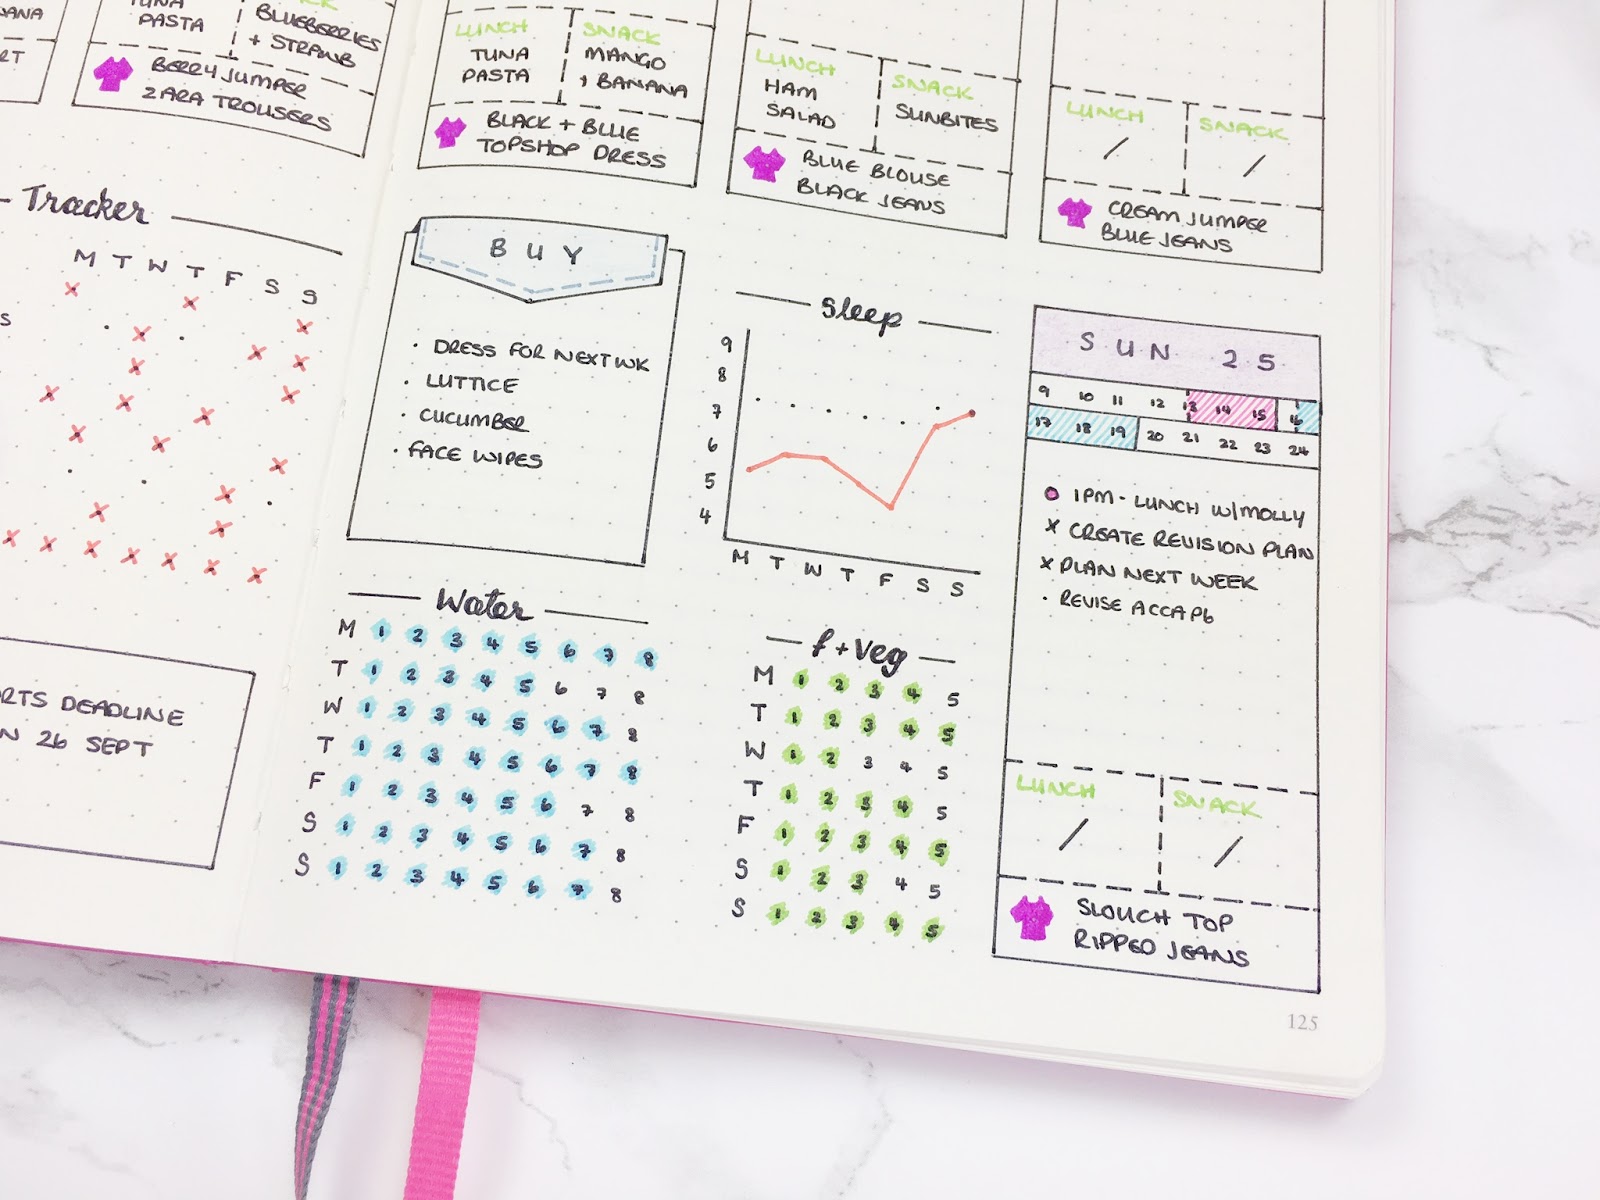 TUNA
PASTA
BLUEBERRIES
+ STRAWB
BERRY JUMPER
ZARA TROUSERS
LUNCH
TUNA
PASTA
SNACK
MANGO
+ BANANA
BLACK + BLUE
TOPSHOP DRESS
LUNCH
HAM
SALAD
SNACK
SUNBITES
BLUE BLOUSE
BLACK JEANS
LUNCH
/
SNACK
/
CREAM JUMPER
BLUE JEANS
Tracker
M T W T F S S
ARTS DEADLINE
26 SEPT
BUY
· DRESS FOR NEXT WK
· LUTTICE
· CUCUMBER
· FACE WIPES
Sleep
9
8
7
6
5
4
M T W T F S S
Water
M 1 2 3 4 5 6 7 8
T 1 2 3 4 5 6 7 8
W 1 2 3 4 5 6 7 8
T 1 2 3 4 5 6 7 8
F 1 2 3 4 5 6 7 8
S 1 2 3 4 5 6 7 8
S 1 2 3 4 5 6 7 8
f + Veg
M 1 2 3 4 5
T 1 2 3 4 5
W 1 2 3 4 5
T 1 2 3 4 5
F 1 2 3 4 5
S 1 2 3 4 5
S 1 2 3 4 5
SUN 25
9 10 11 12 13 14 15 16
17 18 19 20 21 22 23 24
1PM - LUNCH W/MOLLY
x CREATE REVISION PLAN
x PLAN NEXT WEEK
· REVISE ACCA P6
LUNCH
/
SNACK
/
SLOUCH TOP
RIPPED JEANS
125